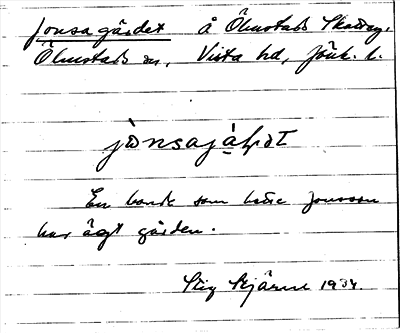 Jonsagärdet å Ölmstads Skatteg.
Ölmstads sn, Vista hd, Jönk. l.
En bonde som hette Jonsson
har ägt gården.
Stig Bjärne 1934